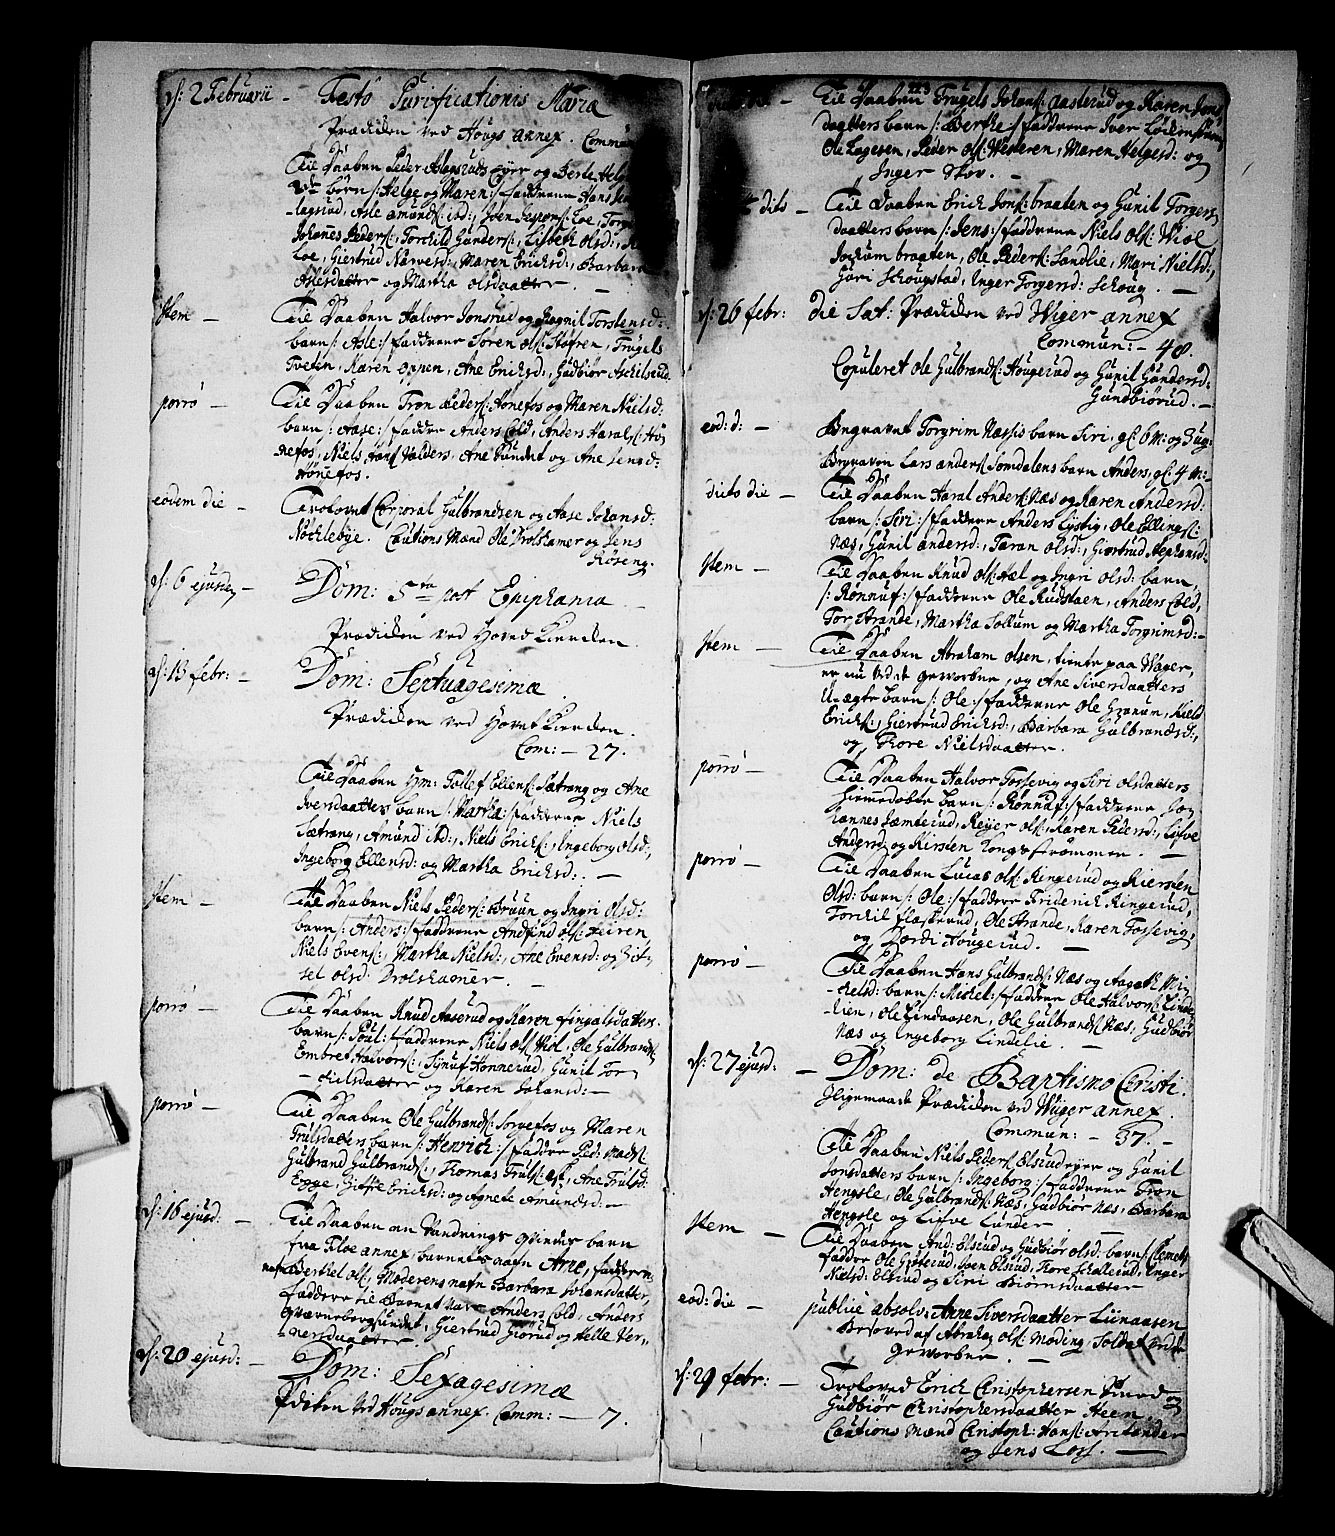 d: 2 Februarii – Festo Purificationis Mariæ
Prædiken ved Hougs annex. Commun
Til Daaben Peder Aslagsruds Eyer og Berte Helge
børn /: Helge og Maren :/ fadderne Hans
Asle Amunds: ibd:, Svend Jespers: Loe,
Johanes Peders:, Torchild Gunders:, Lisbeth Olsd:,
Loe, Giertrud Narvesd:, Maren Erichsd:, Barbara
Aslesdaatter og Martha Olsdaatter. –
Item – Til Daaben Halvor Jonsrud og Ragnil Torstensd:
barn /: Asle :/ fadderne Søren Ols: Stofren, Trugels
Tveten, Karen Oppen, Ane Erichsd:, Gudbiør Aschilsrud
porrò – Til Daaben Tron Peders: Hønefos og Maren Nielsd:
barn /: Aase :/ faddere Anders Cold, Anders Harals: Hø-
nefos, Niels Hans: Valders, Ane Lundet og Ane Jensd:
Hønefos.
eodem die – Trolovet Corporal Gulbrandsen og Aase Johansd:
Nochlebye. Cautions Mænd Ole Trolshamer og Jens
Røseng.
d: 6 ejusdem – Dom: 5ta post Epiphania –
Prædiken ved Hoved Kircken.
d: 13 febr: – Dom: Septuagesima.
Prædiken ved Hovet Kircken.
Com: – 27.
Til Daaben Hm: Tollef Ellens: Sætrang og Ane
Iversdaatters barn /: Martha :/ fadderne Niels
Sætrang, Amund ibd:, Niels Erichs:, Ingeborg Olsd:,
Ingeborg Ellensd: og Martha Erichsd: –
Item – Til Daaben Niels Peders: Bruun og Ingri Olsd:
barn /: Anders :/ fadderne Andfind Ols: Heiren
Niels Evens:, Martha Nielsd:, Ane Evensd: og Zit-
sel Olsd: Trolshamer. –
porrò – Til Daaben Knud Aaserud og Karen Fingalsdatters
barn /: Poul :/ fadderne Niels Ols: Wiol, Ole Gulbrands:
Embret Halvors:, Synuf Honnerud, Gunil Tor-
chilsdaatter og Karen Johansd: –
porrò – Til Daaben Ole Gulbrands: Sorgefos og Maren
Trulsdatters barn /: Henrich :/ faddere Ped: Mads:
Gulbrand Gulbrands:, Thomas Truls:, Ane Trulsd:
Egge, Zitsle Erichsd: og Agnete Amundsd: –
d: 16 ejusd: – Til Daaben en Vandrings Qvindes barn
fra Floe annex, barnets nafn Ane, faderens
nafn Berthel Ols:, Moderens nafn Barbara Johansdatter,
faddere til Barnet vare Anders Cold, Anders
Qværnbergsundet, Giertrud Giørud og Helle Ver-
nersdaatter. –
d: 20 ejusd: – Dom: Sexagesima
Pdiken ved Hougs annex. Comm: – 7.
113
Til Daaben Trugels Johans: Aasterud og Karen Jens
daatters barn /: Berthe :/ fadderne Iver
Ole Lagesen, Peder Ols: Westeren, Maren Helgesd: og
Inger Stov. –
dito – Til Daaben Erich Jons: braaten og Gunil Torgers
daatters barn /: Jens :/ fadderne Niels Ols: Wiol,
Jochum braaten, Ole Peders: Sandlie, Mari Nielsd:,
Gari Schougstad, Inger Torgersd: Schoug. –
d: 26 febr: die Sat: Prædiken ved Wiger annex
Commun: – 48.
Copuleret Ole Gulbrands: Hougerud og Gunil Gundersd:
Gundbiørud. –
eod: d: – Begravet Torgrim Næssis barn Siri, gl: 6 m: og 3 ug:
Begraven Lars Anders: Somdalens barn Anders, gl: 4 m: –
dicto die – Til Daaben Haral Anders: Næs og Karen Andersd:
barn /: Siri :/ fadderne Anders Lystig, Ole Ellings:
Næs, Gunil Andersd:, Taran Olsd:, Giertrud Stephansd: –
Item – Til Daaben Knud Ols: Hæl og Ingri Olsd: barn,
/: Rønnuf :/ fadderne Ole Rudstaen, Anders Cold,
Tor Strande, Martha Sollum og Martha Torgrimsd: –
Item – Til Daaben Abraham Olsen, tiente paa Wager,
er nu ved de geworbne, og Ane Siversdaatters
Uægte barn /: Ole :/ fadderne Ole Granum, Niels
Erichs:, Giertrud Erichsd:, Barbara Gulbrandsd:,
og Thore Nielsdaatter.
porrò – Til Daaben Halvor Fossevig og Siri Olsdatters
hiemedøbte barn /: Rønnuf :/ fadderne Jo-
hannes Semterud, Reyer Ols:, Karen Pedersd:, Lisve
Andersd og Kirsten Kongsstrømmen. –
porrò – Til Daaben Lucas Ols: Ringerud og Kiersten
Olsd: barn /: Ole :/ faddere Friderich Ringerud,
Torchil Flaskerud, Ole Strande, Karen Fossevig,
og Dordi Hougerud. –
porrò – Til Daaben Hans Gulbrands: Næs og Aagath Mi-
chelsd: barn /: Michel :/ faddere Ole Halvors: Linde
lien, Ole Lindaasen, Ole Gulbrands: Næs, Gudbiør
Næs og Ingeborg Lindelie. –
d: 27 ejusd: – Dom: de Baptismo Christi.
Iligemaade Prædiken ved Wiger annex.
Commun: – 37. –
Til Daaben Niels Peders: Elsrudeyer og Gunil
Jonsdatters barn /: Ingeborg :/ fadderne Tron
Hengsle, Ole Gulbrands: Næs, Gudbiør Næs, Barbara
Hengsle og Lisve Lunder –
Item – Til Daaben And: Elsrud og Gudbiør Olsd: barn /: Clemet :/
faddere Ole Gusterud, Sven Elsrud, Thore Schollerud, Inger
Nielsd: Elsrud og Siri Biørnsdaatter
eod: die – publicè absolv: Anne Siversdaatter Liinaasen
Besovet af Abraham Ols: Moding, Soldat under de
Geworbne. –
d: 29 febr: – Troloved Erich Christophersen Bjerre og
Gudbiør Christophersdaatter Heen.
Cautions Mænd Christoph: Hans: Aristander
og Jens Loss. –